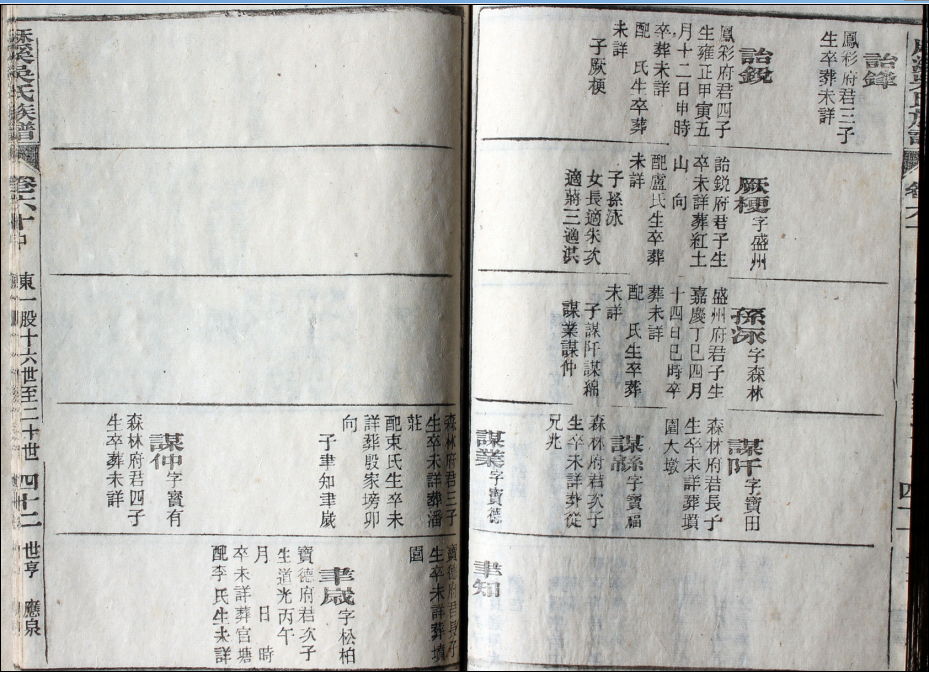 詒鋒
鳳彩府君三子
生卒葬未詳
詒銳
鳳彩府君四子
生雍正甲寅五
月十二日申時
卒葬未詳
配　氏生卒葬
未詳
子厥梗
厥梗字盛州
詒銳府君子生
卒未詳葬紅土
山　向
配盧氏生卒葬
未詳
子孫泳
女長適朱次
適蔣三適洪
孫泳字森林
盛州府君子生
嘉慶丁巳四月
十四日巳時卒
葬未詳
配　氏生卒葬
未詳
子謀阡謀綿
謀業謀仲
謀阡字寶田
森林府君長子
生卒未詳葬墳
園大墩
謀綿字寶福
森林府君次子
生卒未詳葬從
兄兆
謀業字寶德
聿知
森林府君三子
生卒未詳葬潘
莊
配東氏生卒未
詳葬殷家塝卯
向
子聿知聿歲
謀仲字寶有
森林府君四子
生卒葬未詳
寶德府君長子
生卒未詳葬墳
園
聿歲字松柏
寶德府君次子
生道光丙午
月　日　時
卒未詳葬官塘
配李氏生未詳
吳氏族譜
卷六十中
東一股十六世至二十世
四十二
世亨
應泉